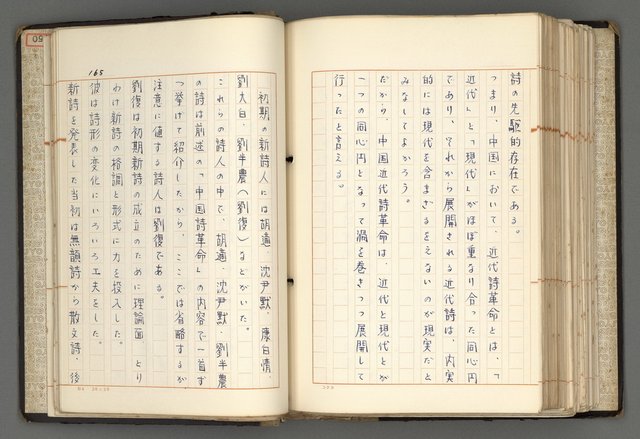 詩の先駆的存在である。
つまり、中国において、近代詩革命とは、「
近代」と「現代」がほぼ重なり合った同心円
であり、それから展開される近代詩は、内実
的には現代を含まざるをえないのが現実だと
みなしてよかろう。
だから、中国近代詩革命は、近代と現代とが
一つの同心円となって渦を巻きつつ展開して
行ったと言える。
165
初期の新詩人には胡適、沈尹默、康白情、
劉大白、劉半農(劉復)などがいた。
これらの詩人の中で、胡適、沈尹默、劉半農
の詩は前述の「中国詩革命」の内容で一首ず
つ挙げて紹介したから、ここでは省略するが
注意に値する詩人は劉復である。
劉復は初期新詩の成立のために理論面、とり
わけ新詩の格調と形式に力を投入した。
彼は詩形の変化にいろいろ工夫をした。
新詩を発表した当初は無韻詩から散文詩、後